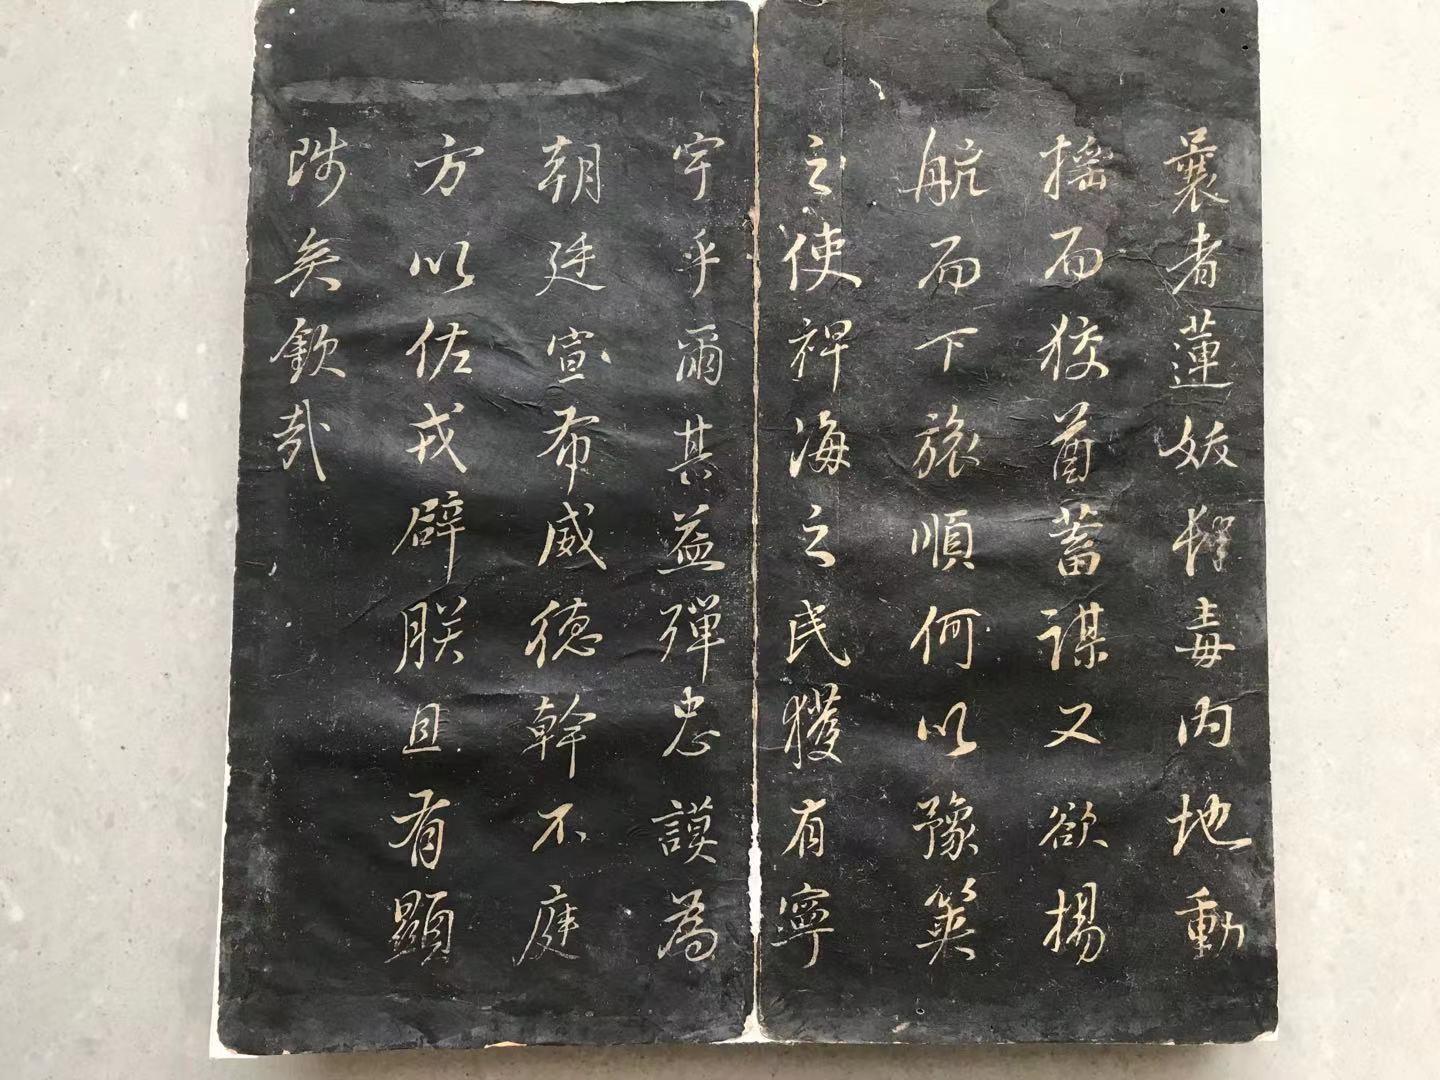 曩者蓮妖肆毒内地動
摇而狡酋蓄謀又欲揚
航而下旅順何以豫策
之使裨海之民獲有寧
宇乎爾其益殫忠謨為
朝廷宣布威德幹不庭
方以佐戎辟朕且有顯
陟矣欽哉